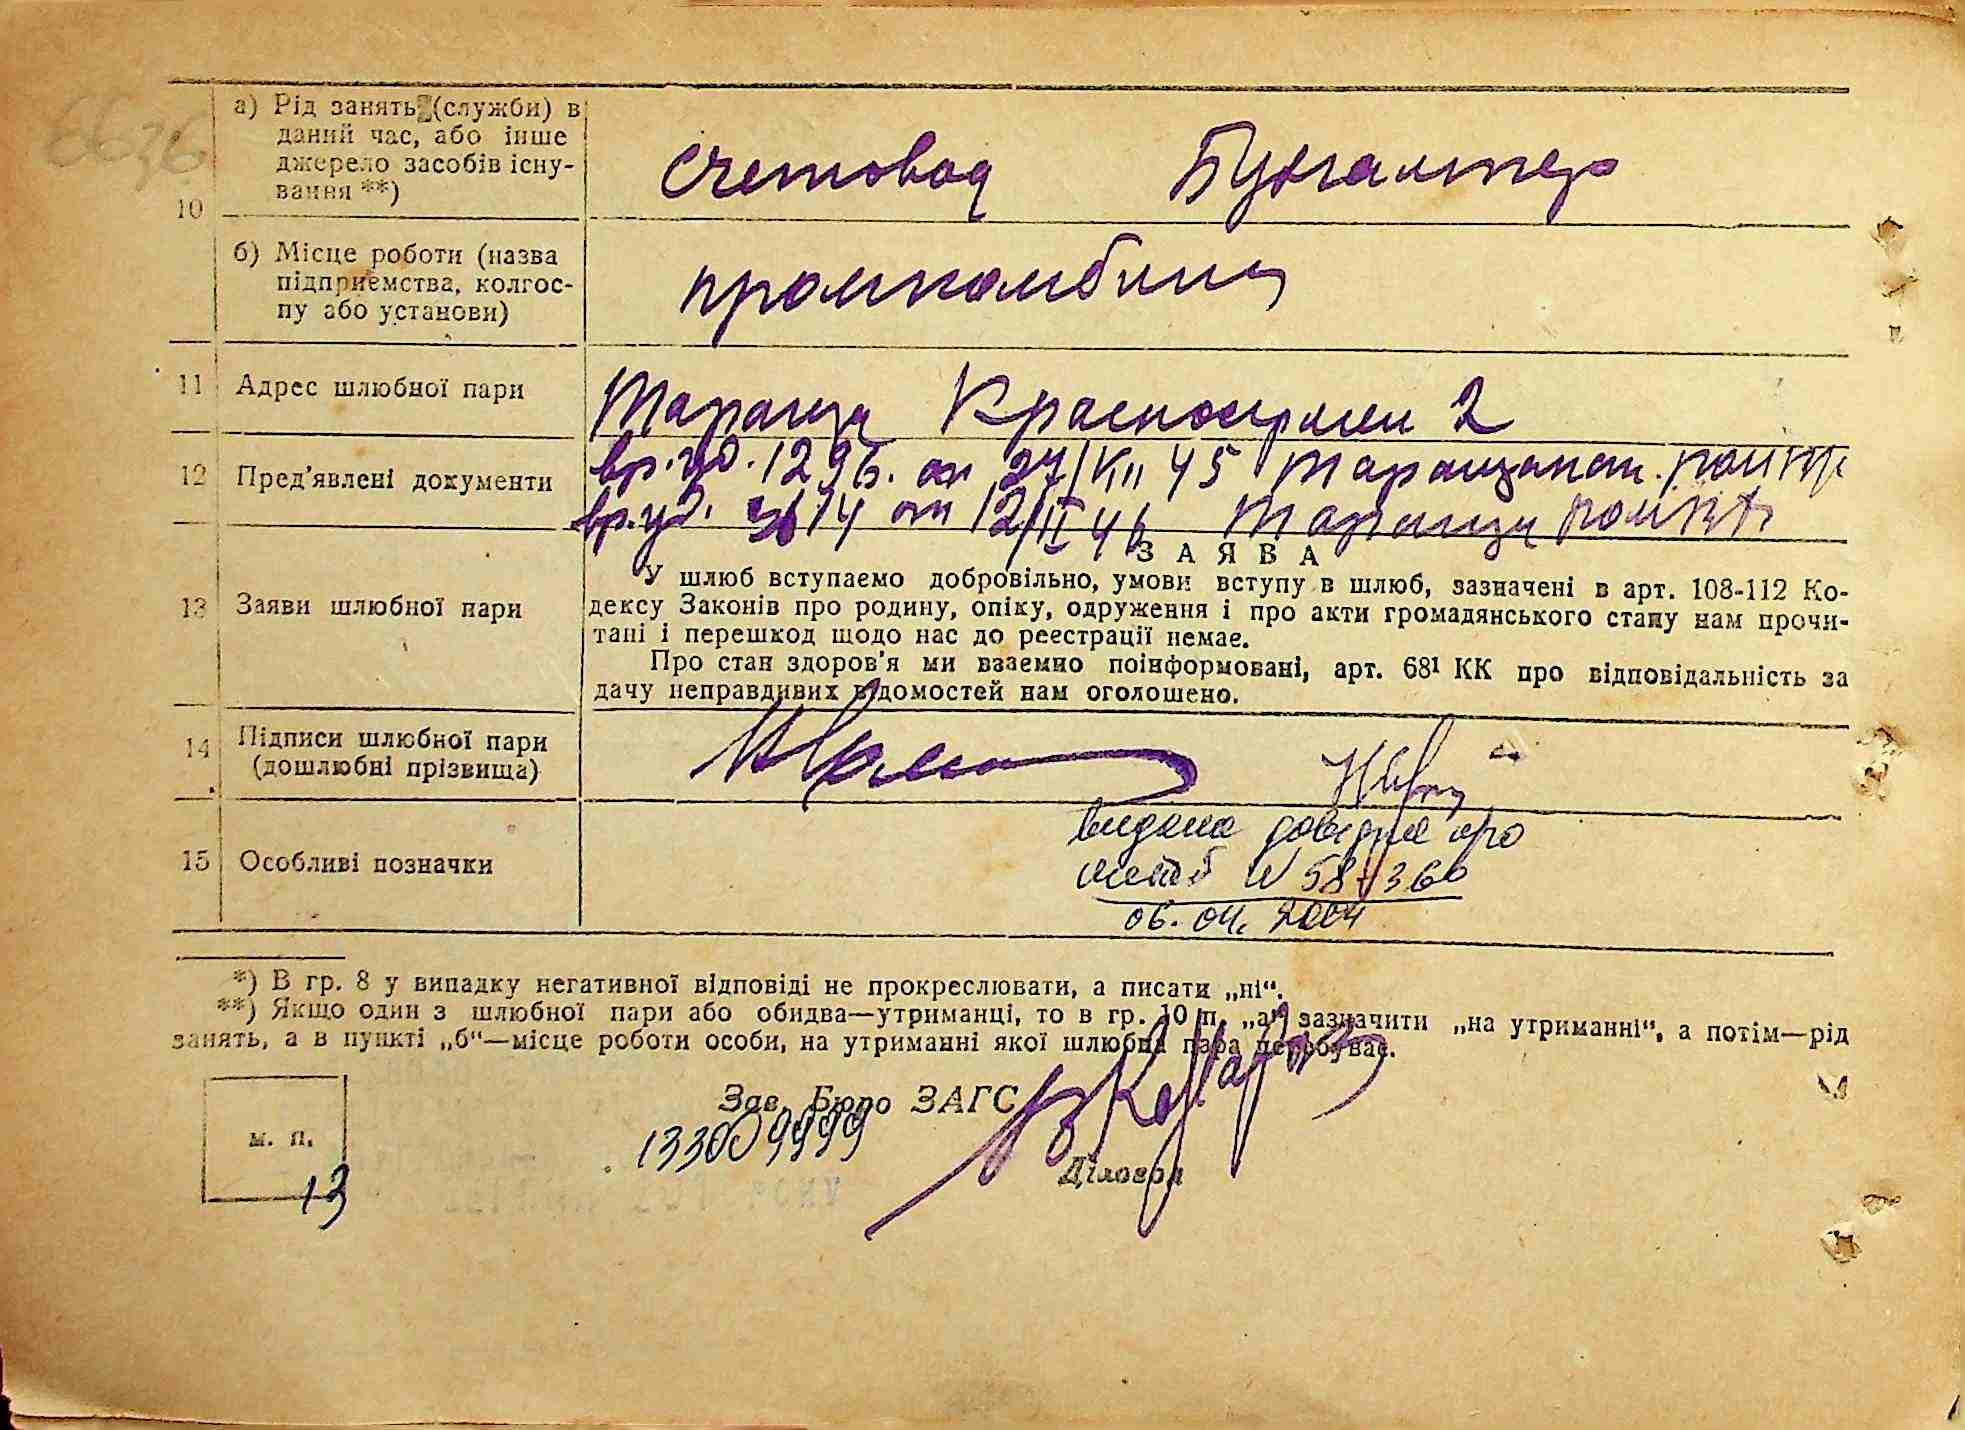 6636
10
а) Рід занять (служби) в
даний час, або інше
джерело засобів існу-
вання **)
счетовод Бухгалтер
б) Місце роботи (назва
підприємства, колгос-
пу або установи)
промкомбинат
11 Адрес шлюбної пари
Тараща Красноармеи 2
12 Пред'явлені документи
вр. уд. 1296. от 27/VII 45 Таращанск.
вр. уд. от 12/II 46 Тараща
13 Заяви шлюбної пари
ЗАЯВА
У шлюб вступаємо добровільно, умови вступу в шлюб, зазначені в арт. 108-112 Ко-
дексу Законів про родину, опіку, одруження і про акти громадянського стану нам прочи-
тані і перешкод щодо нас до реєстрації немає.
Про стан здоров'я ми взаємно поінформовані, арт. 68¹ КК про відповідальність за
дачу неправдивих відомостей нам оголошено.
14 Підписи шлюбної пари
(дошлюбні прізвища)
15 Особливі позначки
видана довідка про
шлюб N 58-/360
06.04.2004
*) В гр. 8 у випадку негативної відповіді не прокреслювати, а писати „ні“.
**) Якщо один з шлюбної пари або обидва—утриманці, то в гр. 10 п. „а“ зазначити „на утриманні“, а потім—рід
занять, а в пункті „б“—місце роботи особи, на утриманні якої шлюбна пара перебуває.
Зав. Бюро ЗАГС
13300 9999
м. п.
13
Діловод